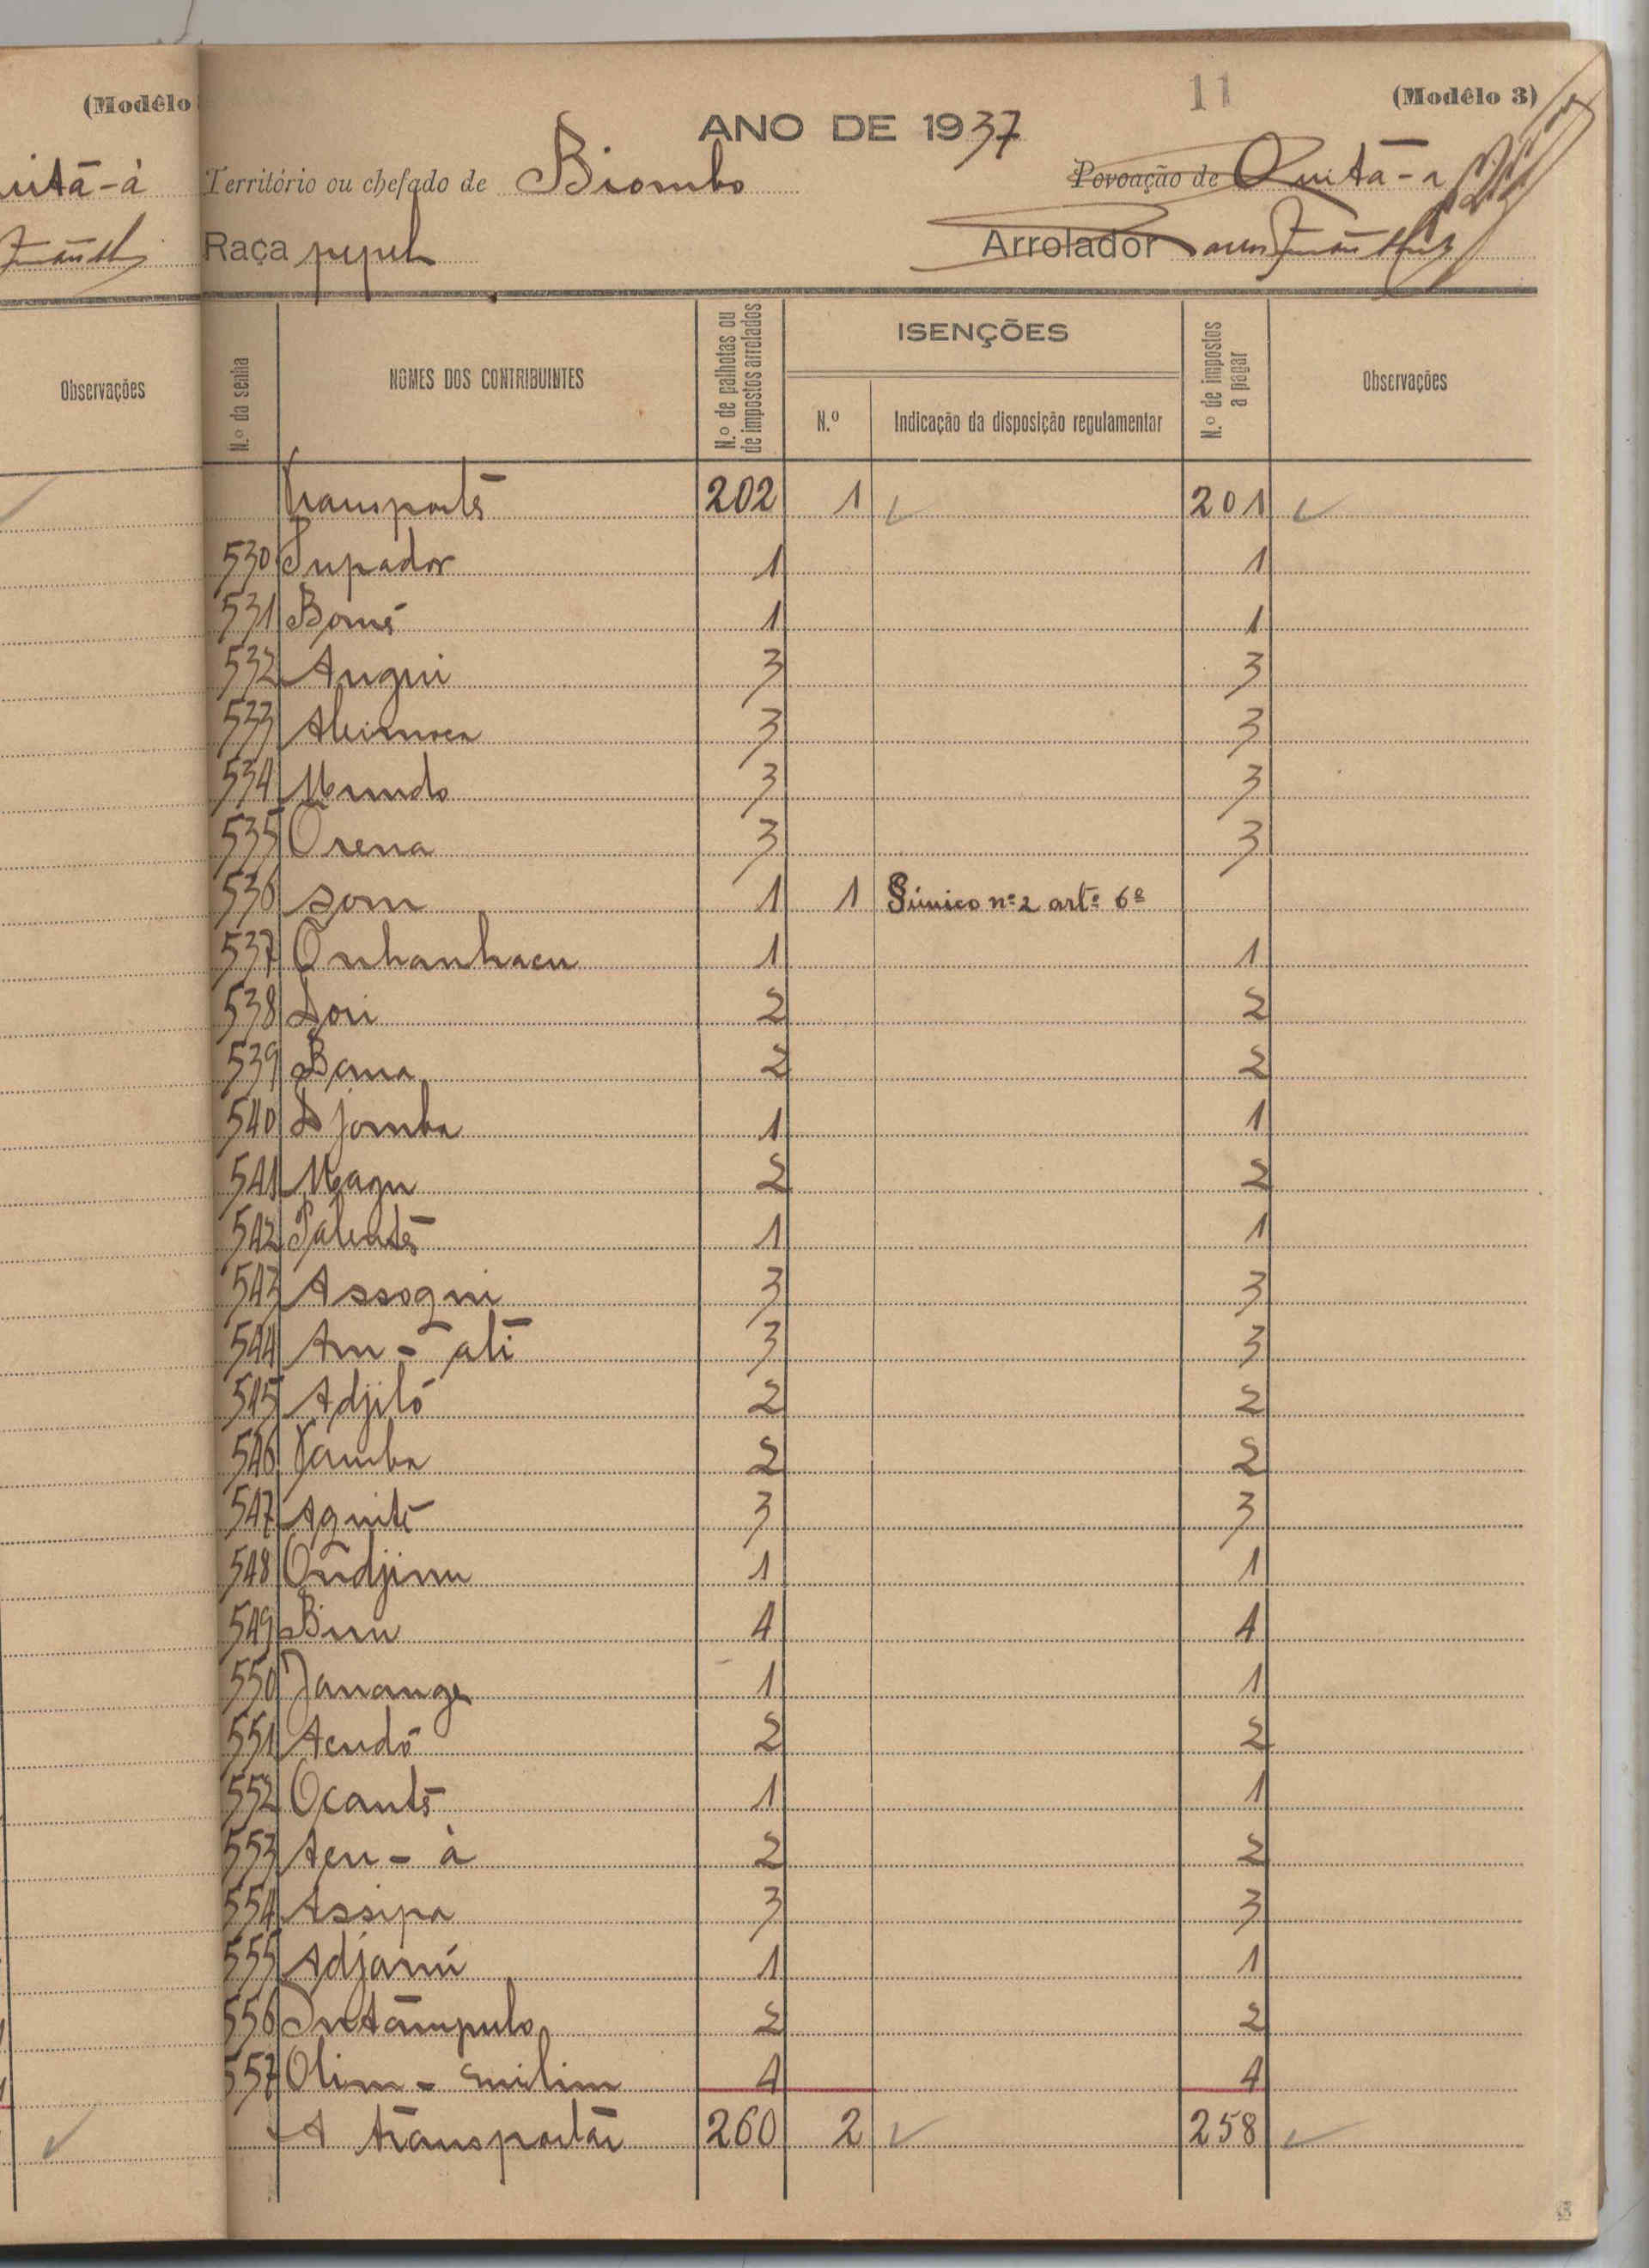 (Modêlo
uitā-à
Observações
11
(Modêlo 3)
ANO DE 1937
Território ou chefado de Biombo
Povoação de Quitā-a
Raça pepel
Arrolador
N.º da senha
NOMES DOS CONTRIBUINTES
N.º de palhotas ou de impostos arrolados
ISENÇÕES
N.º
Indicação da disposição regulamentar
N.º de impostos a pagar
Observações
Transporte 202 1 201
530 Supador 1 1
531 Bomé 1 1
532 Angui 3 3
533 3 3
534 Mundo 3 3
535 Orena 3 3
536 som 1 1 § único nº 2 artº 6º
537 Onhanhacu 1 1
538 Dori 2 2
539 Bana 2 2
540 Djomba 1 1
541 Magu 2 2
542 1 1
543 Assogui 3 3
544 Am - ali 3 3
545 Adjiló 2 2
546 Tamba 2 2
547 Aquité 3 3
548 Ondjimu 1 1
549 4 4
550 Janange 1 1
551 Acudó 2 2
552 Ocanté 1 1
553 Acu - à 2 2
554 Assipa 3 3
555 Adjamú 1 1
556 Intāmpulo 2 2
557 Olim - 4 4
A transportar 260 2 258